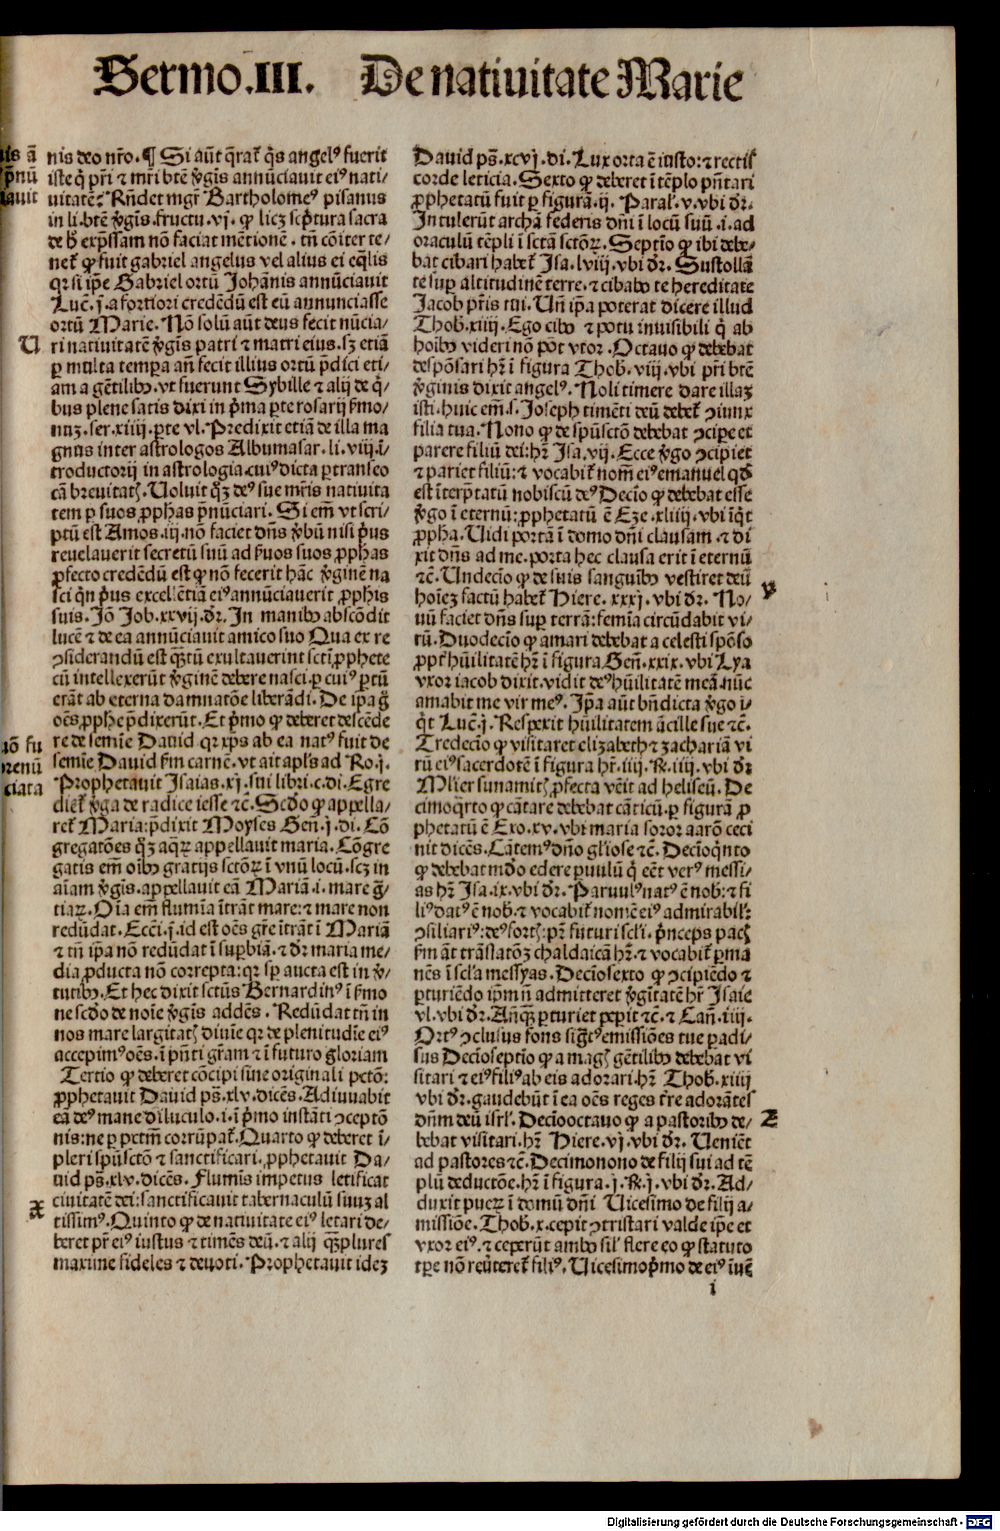 Sermo.III. De natiuitate Marie
nis deo nr̃o.¶ Si aũt q̃rat̃ q̃s angelꝰ fuerit
iste q̇ pr̃i ⁊ mr̃i btẽ v̓gĩs annũciauit eiꝰ nati-
uitatẽ? Rñdet mgr̃ Bartholomeꝰ pisanus
in li. btẽ v̓gĩs. fructu. vj. ꝙ licꝫ scp̃tura sacra
de h̓ exp̃ssam nõ faciat mẽtionẽ. tñ cõiter te-
net̃ ꝙ fuit gabriel angelus vel alius ei eq̃lis
qr si ip̃e Gabriel ortũ Johãnis annũciauit
Luc̃. j. a fortiori credẽdũ est eũ annunciasse
ortũ Marie. Nõ solũ aũt deus fecit nũcia-
U
ri natiuitatẽ v̓gĩs patri ⁊ matri eius. sꝫ etiã
ꝑ multa tempa añ fecit illius ortũ p̃dici eti-
am a gẽtilibꝰ. vt fuerunt Sybille ⁊ alij de q̇-
bus plene satis dixi in p̃ma ꝑte rosarij ẜmo-
nuꝫ. ser. xiiij. ꝑte vl. Predixit etiã de illa ma
gnus inter astrologos Albumasar. li. viij. ĩ-
troductorij in astrologia. cuiꝰ dicta ꝑtranseo
cã breuitatꝭ. Uoluit q̃ꝫ deꝰ sue mr̃is natiuita
tem ꝑ suos ꝓphas p̃nũciari. Si em̃ vt scri-
ptũ est Amos. iij. nõ faciet dñs v̓bũ nisi p̃us
reuelauerit secretũ suũ ad ẜuos suos ꝓphãs
ꝓfecto credẽdũ est ꝙ nõ fecerit hãc v̓ginẽ na
sci q̇n p̃us excellẽtiã eiꝰ annũciauerit ꝓphis
suis. Jõ Job. xxvij. dr̃. In manibꝰ abscõdit
lucẽ ⁊ de ea annũciauit amico suo Qua ex re
ↄsiderandũ est q̃ꝫtũ exultauerint sctĩ ꝓphete
cũ intellexerũt v̓ginẽ debere nasci. ꝑ cuiꝰ ꝑtũ
erãt ab eterna damnatõe liberãdi. De ip̃a g̊
oẽs ꝓphe p̃dixerũt. Et p̃mo ꝙ deberet descẽde
re de semĩe Dauid qr xp̃s ab ea natꝰ fuit de
semĩe Dauid ẜm carnẽ. vt ait apl̃s ad Ro. j.
Prophetauit Isaias. xj. sui libri. c. di. Egre
diet̃ v̓ga de radice iesse ⁊c̃. Scd̃o ꝙ appella-
ret̃ Maria: p̃dixit Moyses Geñ. j. di. Cõ
gregatões q̃ꝫ aq̃ꝝ appellauit maria. Cõgre
gatis em̃ oĩbꝰ gratijs sctõꝝ ĩ vnũ locũ. scꝫ in
aĩam v̓gĩs. appellauit eã Mariã. i. mare g̃-
tiaꝝ. Oĩa em̃ flumĩa ĩtrãt mare: ⁊ mare non
redũdat. Ecc̃i. j. id est oẽs gr̃e ĩtrãt ĩ Mariã
⁊ tñ ip̃a nõ redũdat ĩ suꝑbiã. ⁊ dr̃ maria me-
dia ꝓducta nõ correpta: qr sp̃ aucta est in v̓-
tutibꝰ. Et hec dixit sctũs Bernardinꝰ ĩ ẜmo
ne scd̃o de noĩe v̓gĩs addẽs. Redũdat tñ in
nos mare largitatꝭ diuĩe qr de plenitudĩe eiꝰ
accepimꝰ oẽs. ĩ pñti gr̃am ⁊ ĩ futuro gloriam
Tertio ꝙ deberet cõcipi sine originali pctõ:
ꝓphetauit Dauid ps̃. xlv. dicẽs. Adiuuabit
eã deꝰ mane dĩluculo. i. ĩ p̃mo instãti ↄceptõ
nis: ne ꝑ pctm̃ corrũpat̃. Quarto ꝙ deberet ĩ-
pleri spũsctõ ⁊ sanctificari. ꝓphetauit Da-
uid ps̃. xlv. dicẽs. Flumĩs impetus letificat
X
ciuitatẽ dei: sanctificauit tabernaculũ suuꝫ al
tissimꝰ. Quinto ꝙ de natiuitate eiꝰ letari de-
beret pr̃ eiꝰ iustus ⁊ timẽs deũ. ⁊ alij q̃ꝫplures
maxime fideles ⁊ deuoti. Prophetauit ideꝫ
Dauid ps̃. xcvj. di. Lux orta ẽ iusto: ⁊ rectis̃
corde leticia. Sexto ꝙ deberet ĩ tẽplo pñtari
ꝓphetatũ fuit ꝑ figurã. ij. Paral̃. v. vbi dr̃.
Intulerũt archã federis dñi ĩ locũ suũ. i. ad
oraculũ tẽpli ĩ sctã sctõꝝ. Septĩo ꝙ ibi debe-
bat cibari habet̃ Isa. lviij. vbi dr̃. Sustollã
te suꝑ altitudinẽ terre. ⁊ cibabo te hereditate
Jacob pr̃is tui. Uñ ip̃a poterat dicere illud
Thob̃. xiiij. Ego cibo ⁊ potu inuisibili q̇ ab
hoĩbꝰ videri nõ põt vtor. Octauo ꝙ debebat
despõsari hr̃ ĩ figura Thob̃. viij. vbi pr̃i btẽ
v̓ginis dixit angelꝰ. Noli timere dare illaꝫ
isti. huic em̃. s. Joseph timẽti deũ debet̃ ↄiunx
filia tua. Nono ꝙ de spũsctõ debebat ↄcipe et
parere filiũ dei: hr̃ Isa. vij. Ecce v̓go ↄcipiet
⁊ pariet filiũ: ⁊ vocabit̃ nom̃ eiꝰ emanuel qd̃
est ĩterp̃tatũ nobiscũ deꝰ Decĩo ꝙ debebat esse
v̓go ĩ eternũ: ꝓphetatũ ẽ Eze. xliiij. vbi ĩq̇t
ꝓpha. Uidi portã ĩ domo dñi clausam. ⁊ di
xit dñs ad me. porta hec clausa erit ĩ eternũ
⁊c̃. Undecĩo ꝙ de suis sanguĩbꝰ vestiret deũ
hoĩeꝫ factũ habet̃ Hiere. xxxj. vbi dr̃. No-
y
uũ faciet dñs suꝑ terrã: femĩa circũdabit vi-
rũ. Duodecĩo ꝙ amari debebat a celesti spõso
ꝓpt̃ hũilitatẽ hr̃ ĩ figura. Geñ. xxix. vbi Lya
vxor iacob dixit. vidit deꝰ hũilitatẽ meã. nũc
amabit me vir meꝰ. Ip̃a aũt bñdicta v̓go ĩ-
q̇t Luc̃. j. Respexit hũilitatem ãcille sue ⁊c̃.
Tredecĩo ꝙ visitaret elizabeth ⁊ zachariã vi
rũ eiꝰ sacerdotẽ ĩ figura hr̃. iiij. R̃. iiij. vbi dr̃
Ml̃ier sunamitꝭ ꝓfecta vẽit ad heliseũ. De
cimoq̃rto ꝙ cãtare debebat cãticũ. ꝑ figurã ꝓ
phetatũ ẽ Exo. xv. vbi maria soror aarõ ceci
nit dicẽs. Cãtemꝰ dño gl̃iose ⁊c̃. Decĩoq̇nto
ꝙ debebat mũdo edere ꝑuulũ q̇ eẽt verꝰ messi-
as hr̃ Isa. ix. vbi dr̃. Paruulꝰ natꝰ ẽ nob̃: ⁊ fi
liꝰ datꝰ ẽ nob̃. ⁊ vocabit̃ nomẽ eiꝰ admirabil̃:
ↄsiliariꝰ: deꝰ fortꝭ: pr̃ futuri sc̃li. p̃nceps pacꝭ
ẜm aũt trãslatõꝫ chaldaicã hr̃. ⁊ vocabit̃ ꝑma
nẽs ĩ sc̃la messyas. Decĩosexto ꝙ ↄcipiẽdo ⁊
ꝑturiẽdo ip̃m ñ admitteret v̓gĩtatẽ hr̃ Isaie
vl. vbi dr̃. Añq̃ꝫ ꝑturiet peꝑit ⁊c̃. ⁊ Cañ. iiij.
Ortꝰ ↄclusus fons sig̃tꝰ emissiões tue ꝑadi-
sus Decĩoseptĩo ꝙ a magꝭ gẽtilibꝰ debebat vi
sitari ⁊ eiꝰ filiꝰ ab eis adorari. hr̃ Thob̃. xiiij
vbi dr̃. gaudebũt ĩ ea oẽs reges tr̃e adorãtes
dñm deũ isrl̃. Decĩooctauo ꝙ a pastoribꝰ de-
Z
bebat visitari. hr̃ Hiere. vj. vbi dr̃. Ueniẽt
ad pastores ⁊c̃. Decimonono de filij sui ad tẽ
plũ deductõe. hr̃ ĩ figura. j. R̃. j. vbi dr̃. Ad-
duxit pueꝝ ĩ domũ dñi Uicesimo de filij a-
missiõe. Thob̃. x. cepit ↄtristari valde ip̃e et
vxor eiꝰ. ⁊ ceperũt ambo sil̃ flere eo ꝙ statuto
tp̃e nõ reũteret̃ filiꝰ. Uicesimop̃mo de eiꝰ ĩuẽ
i
Digitalisierung gefördert durch die Deutsche Forschungsgemeinschaft - DFG